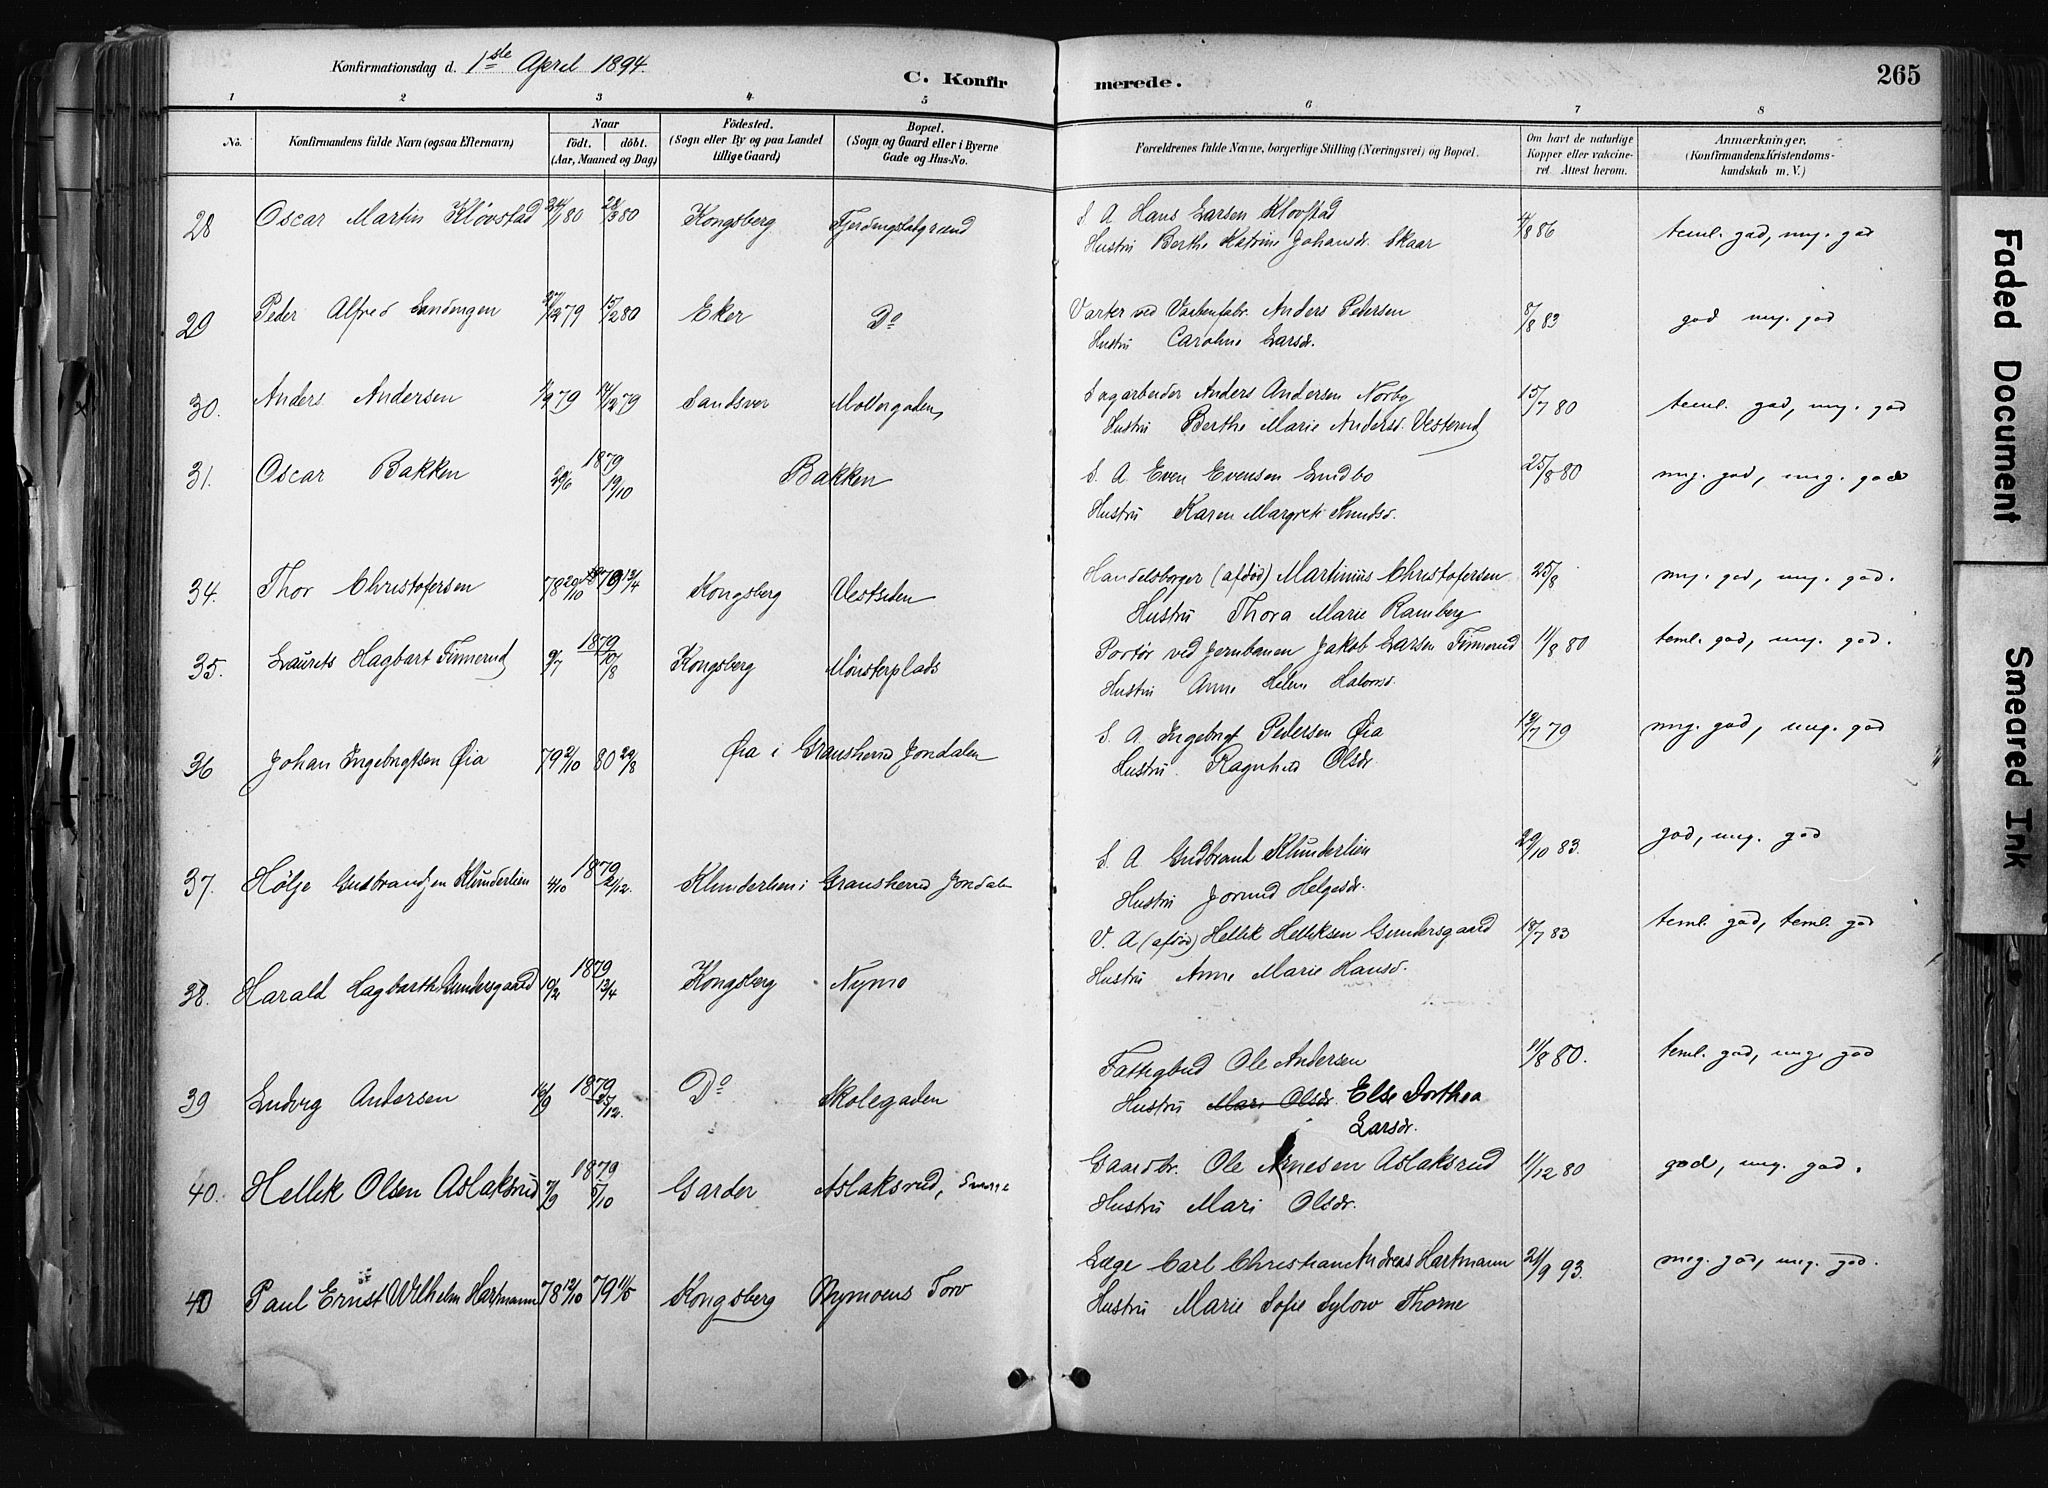 Konfirmationsdag d. 1ste April 1894.
C. Konfirmerede.
265
1 2 3 4 5 6 7 8
No.
Konfirmandens fulde Navn (ogsaa Efternavn)
Naar
født. døbt.
(Aar, Maaned og Dag)
Fødested.
(Sogn eller By og paa Landet tillige Gaard)
Bopæl.
(Sogn og Gaard eller i Byerne Gade og Hus-No.
Forældrenes fulde Navne, borgerlige Stilling (Næringsvei) og Bopæl.
Om havt de naturlige Kopper eller vakcineret. Attest herom.
Anmærkninger.
(Konfirmandens Kristendomskundskab m. V.)
28 Oscar Martin Kløvstad 80 80 Kongsberg S. A. Hans Larsen Klovstad 4/8 86 teml. god, mg. god
Hustru Berthe Katrine Johansdr. Skaar
29 Peder Alfred 79 15/2 80 Eker Do Anders Pedersen 8/8 83 god mg. god
Hustru Caroline Larsdr.
30. Anders Andersen 79 14/12 79 Sandsver Møllergaden Sagarbeider Anders Andersen Norby 15/7 80 teml. god, mg. god
Hustru Berthe Marie Andersd. Vesterud
31. Oscar Bakken 1879 19/10 Bakken S. A. Even Evensen Lundbo 25/8 80 mg. god, mg. god
Hustru Karen Margrete Knudsd.
34. Thor Christofersen 78 29/10 79 13/4 Kongsberg Vestsiden Handelsborger (afdød) Martinius Christofersen 25/8 mg. god, mg. god.
Hustru Thora Marie Ramberg
35. Laurits Hagbart Finnerud 9/7 1879 10/8 Kongsberg Mønsterplads Portør ved Jernbanen Jakob Larsen Finnerud 11/8 80 teml. god, mg. god.
Hustru Anne Helene
36 Johan Ingebrigtsen Øia 79 2/10 80 22/8 Øia i Gransherred Jondalen S. A. Ingebrigt Pedersen Øia 79 mg. god, mg. god
Hustru Ragnhild Olsdr.
37. Hølje Gudbrandsen Klunderlien 4/10 1879 21/12. Klunderlien i Gransherred Jondalen S. A. Gudbrand Klunderlien 29/10 83. god, mg. god
Hustru Jorund Helgesdr.
38. Harald Hagbarth Gundersgaard 10/2 1879 13/4 Kongsberg Nymo V. A. (afdød) Hellik Helliksen Gundersgaard 18/7 83 teml. god, teml. god
Hustru Anne Marie Hansd.
39 Ludvig Andersen 1879 25/12. Do Skolegaden Fattigbud Ole Andersen 11/8 80. teml. god, mg. god
Hustru Mari Olsdr. Else Dorthea
Larsdr.
40. Hellik Olsen Aslaksrud 7/9 1879 5/10 Garder Aslaksrud, Gaardbr. Ole Arnesen Aslaksrud 11/12 80 god, mg. god.
Hustru Mari Olsdr.
40 Paul Ernst Wilhelm Hartmann 78 12/10 79 11/5 Kongsberg Nymoens Torv Læge Carl Christian Andreas Hartmann 21/9 93. meg. god, meg. god.
Hustru Marie Sofie Sylow Thorne
Faded Document
Smeared Ink